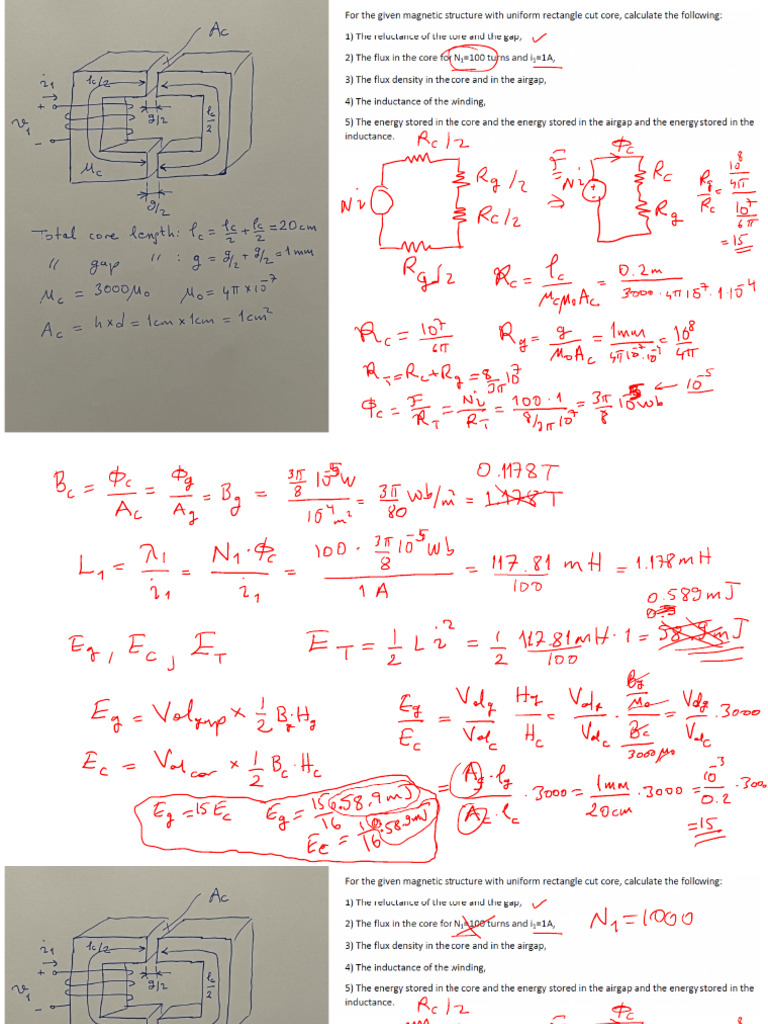 Ac
i1
lc/2
+
v1
-
g/2
lc/2
μc
g/2
Total core length: lc = lc/2 + lc/2 = 20cm
" gap " : g = g/2 + g/2 = 1mm
μc = 3000μ0 μ0 = 4π×10^-7
Ac = h×d = 1cm×1cm = 1cm²
For the given magnetic structure with uniform rectangle cut core, calculate the following:
1) The reluctance of the core and the gap,
2) The flux in the core for N1=100 turns and i1=1A,
3) The flux density in the core and in the airgap,
4) The inductance of the winding,
5) The energy stored in the core and the energy stored in the airgap and the energy stored in the
inductance.
Rc/2
Ni
Rg/2
Rc/2
Rg/2
⇒
F
Ni
+
-
Φc
Rc
Rg
Rg/Rc = (10^8/4π)/(10^7/6π)
= 15
Rc = lc/(μcμ0Ac) = 0.2m/(3000·4π10^-7·1·10^-4)
Rc = 10^7/6π Rg = g/(μ0Ac) = 1mm/(4π10^-7·10^-4) = 10^8/4π
RT = Rc+Rg = 8/3π 10^7
Φc = F/RT = Ni/RT = 100·1/(8/3π 10^7) = 3π/8 10^-5 Wb ← 10^-5
Bc = Φc/Ac = Φg/Ag = Bg = (3π/8 10^-5 W)/(10^-4 m²) = 3π/80 Wb/m² = 1.178 T
0.1178 T
L1 = λ1/i1 = N1·Φc/i1 = (100·3π/8 10^-5 Wb)/1A = 117.81/100 mH = 1.178 mH
0.589 mJ
Eg, Ec, ET ET = 1/2 L i² = 1/2 117.81mH/100 · 1 = 58.9 mJ
Eg = Volgap × 1/2 Bg·Hg
Eg/Ec = Volg/Volc Hg/Hc = Volg/Volc · (Bg/μ0)/(Bc/3000μ0) = Volg/Volc · 3000
Ec = Volcor × 1/2 Bc·Hc
= Ag·lg/Ac·lc · 3000 = 1mm/20cm · 3000 = 10^-3/0.2 · 300
= 15
Eg = 15Ec Eg = 15/16 0.58.9 mJ
Ec = 1/16 0.589mJ
Ac
i1
lc/2
+
v1
-
g/2
lc/2
For the given magnetic structure with uniform rectangle cut core, calculate the following:
1) The reluctance of the core and the gap,
2) The flux in the core for N1=100 turns and i1=1A,
N1=1000
3) The flux density in the core and in the airgap,
4) The inductance of the winding,
5) The energy stored in the core and the energy stored in the airgap and the energy stored in the
inductance.
Rc/2
Φc